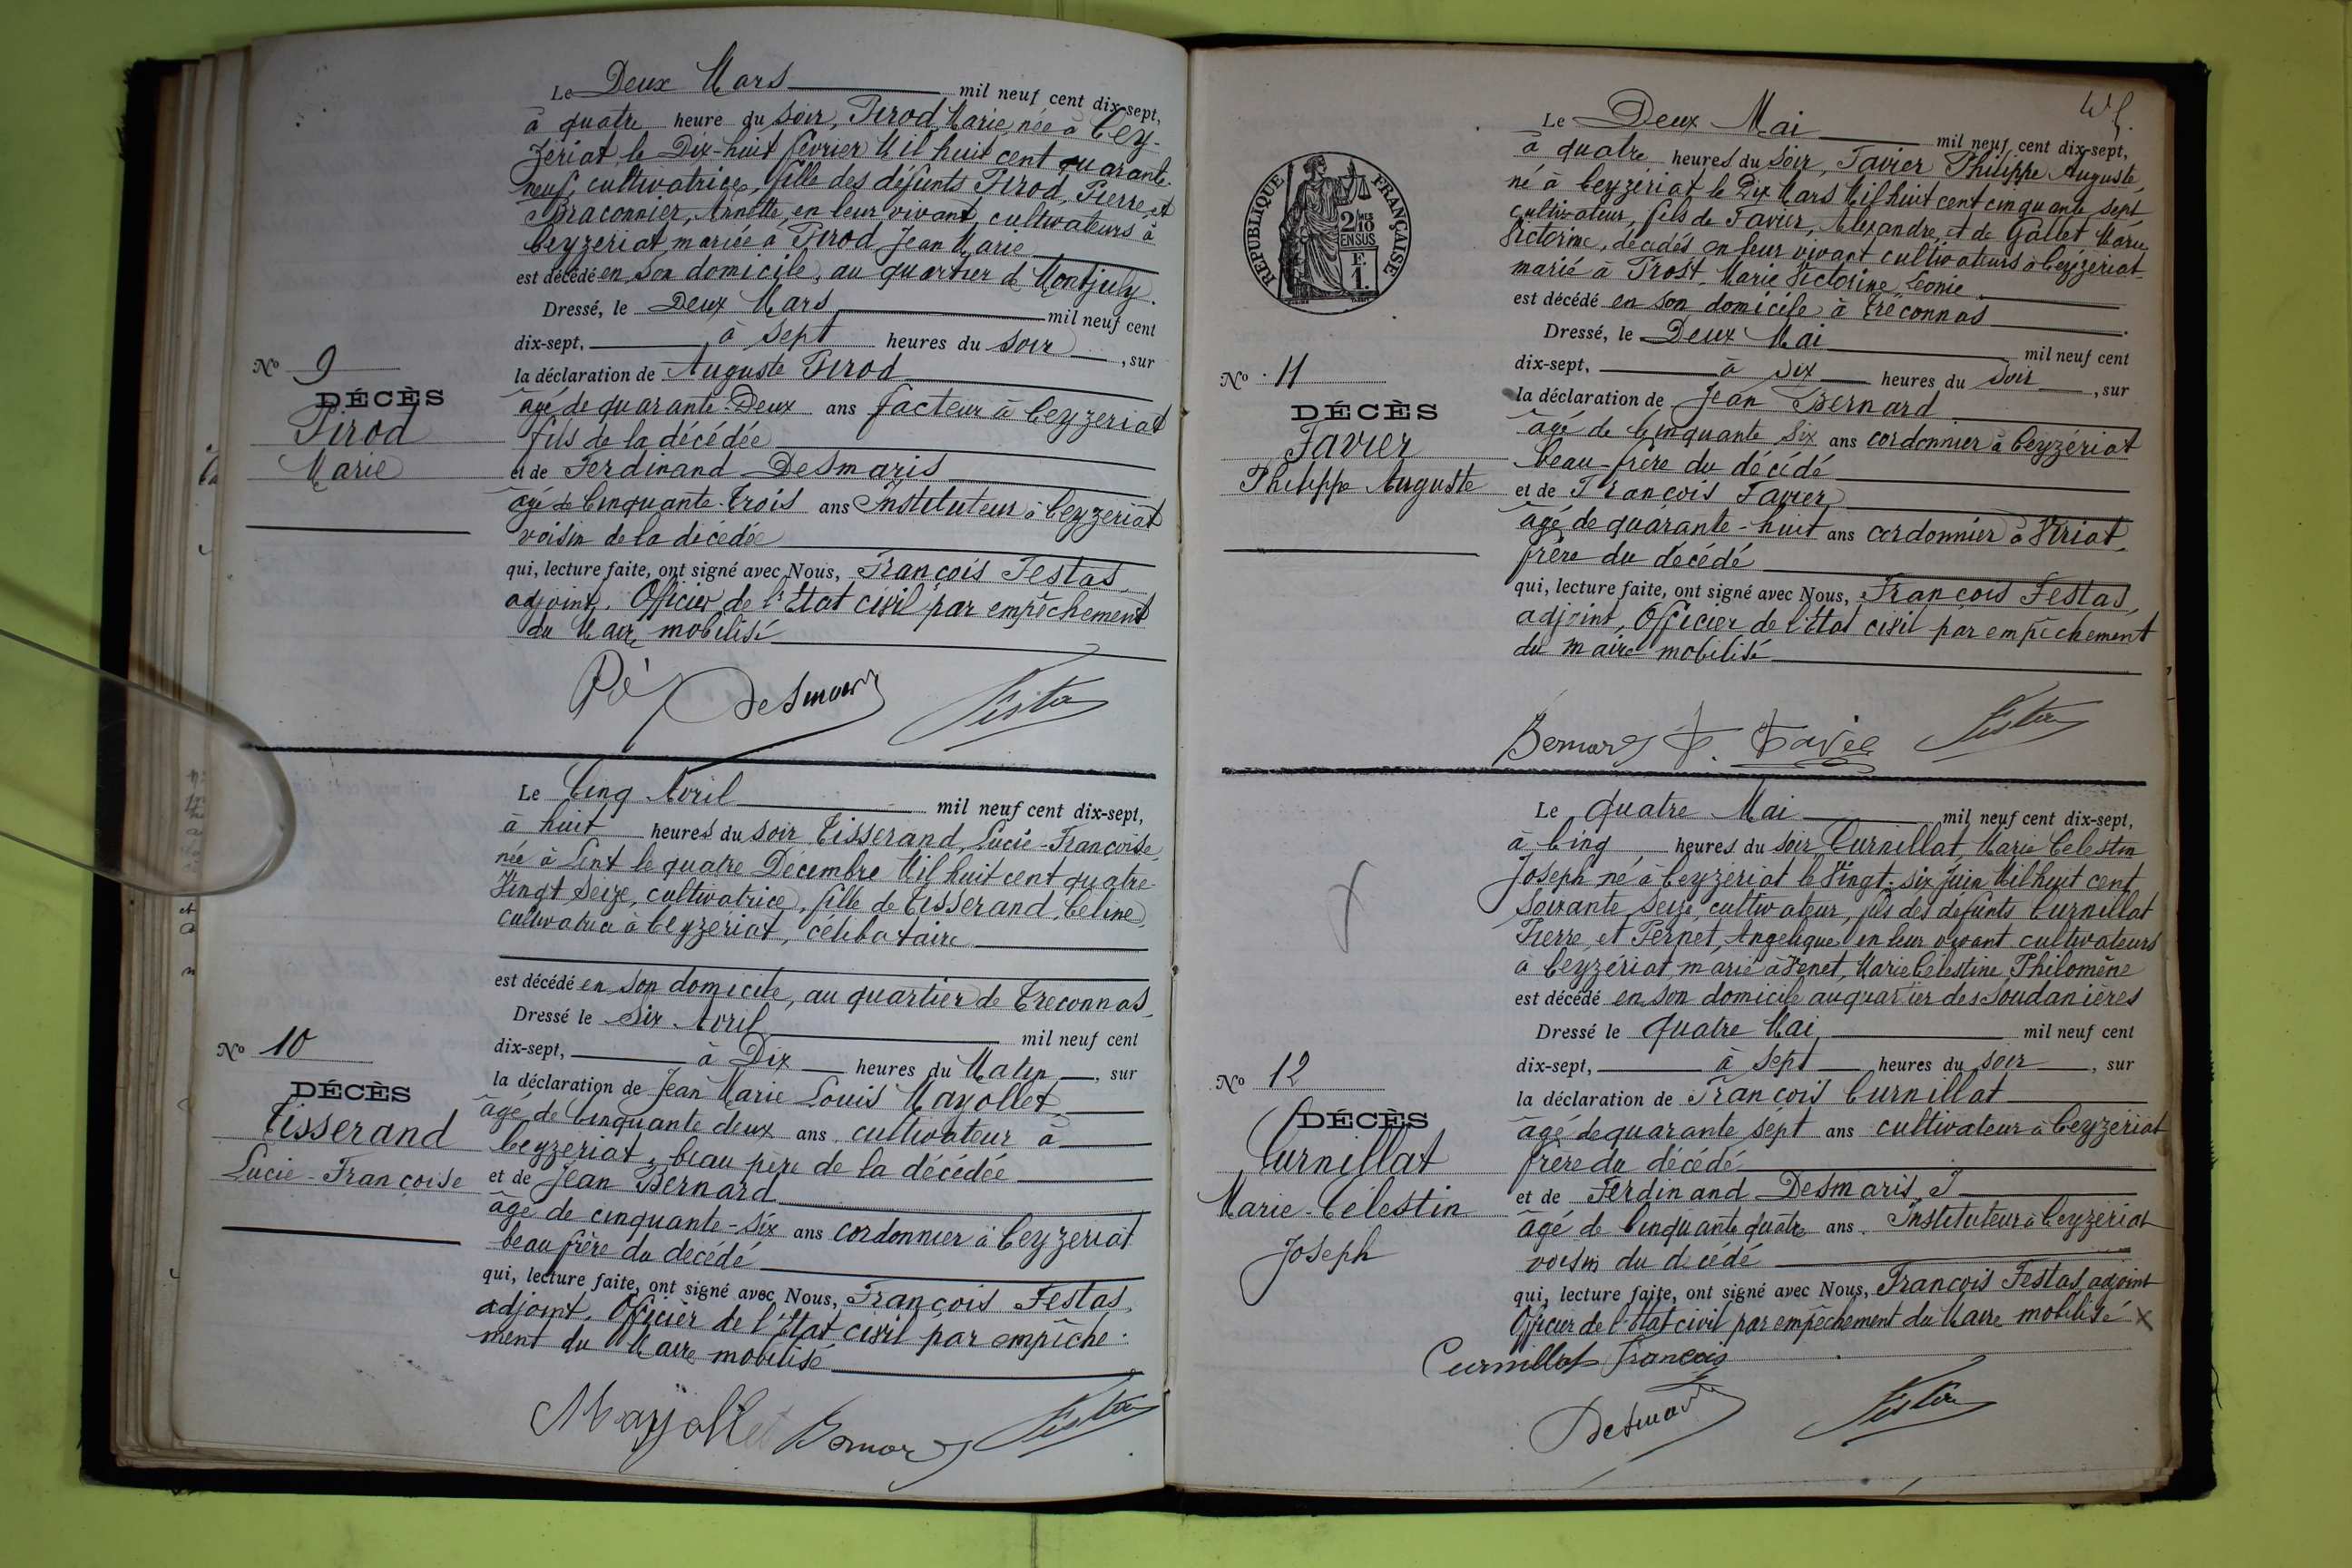 Le Deux Mars mil neuf cent dix-sept,
à quatre heure du soir, Pirod, Marie, née à Cey-
zériat le Dix-huit février Mil huit cent quarante
neuf, cultivatrice, fille des défunts Pirod, Pierre, et
Braconnier, Annette, en leur vivant, cultivateurs à
Ceyzeriat, mariée à Pirod Jean Marie
est décédé en son domicile, au quartier de Montjuly.
Dressé, le Deux Mars mil neuf cent
dix-sept, à sept heures du soir, sur
No 9
la déclaration de Auguste Pirod
DÉCÈS
âgé de quarante-Deux ans facteur à Ceyzeriat
Pirod
fils de la décédée
Marie
et de Ferdinand Desmaris
âgé de Cinquante-trois ans Instituteur à Ceyzeriat
voisin de la décédée
qui, lecture faite, ont signé avec Nous, François Festas,
adjoint, Officier de l'Etat civil par empêchement
du Maire mobilisé
Desmaris
Festas
Le Cinq Avril mil neuf cent dix-sept,
à huit heures du soir Tisserand, Lucie-Françoise,
née à Lent le quatre Décembre Mil huit cent quatre-
Vingt Seize, cultivatrice, fille de Tisserand, Céline,
cultivatrice à Ceyzériat, célibataire
est décédé en son domicile, au quartier de Treconnas
Dressé le Six Avril mil neuf cent
No 10
dix-sept, à Dix heures du Matin, sur
DÉCÈS
la déclaration de Jean Marie Louis Mayollet,
Tisserand
âgé de Cinquante deux ans cultivateur à
Lucie-Françoise
Ceyzeriat, beau père de la décédée
et de Jean Bernard
âgé de cinquante-six ans cordonnier à Ceyzeriat
beau frère du decédé
qui, lecture faite, ont signé avec Nous, François Festas,
adjoint, Officier de l'Etat civil par empêche-
ment du Maire mobilisé
Mayollet Bernard Festas
REPUBLIQUE FRANÇAISE
2/10 MES
EN SUS
F.
1.
Le Deux Mai mil neuf cent dix-sept,
à quatre heures du soir, Favier Philippe Auguste,
né à Ceyzériat le Dix Mars Mil huit cent cinquante sept
cultivateur, fils de Favier, Alexandre, et de Gallet Marie
Victorine, décédés en leur vivant cultivateurs à Ceyzeriat
marié à Prost, Marie Victorine, Léonie
est décédé en son domicile à Tréconnas
Dressé, le Deux Mai mil neuf cent
No 11
dix-sept, à six heures du soir, sur
DÉCÈS
la déclaration de Jean Bernard
Favier
âgé de Cinquante Six ans cordonnier à Ceyzériat
Philippe Auguste
beau-frère du décédé
et de François Favier
âgé de quarante-huit ans cordonnier à Viriat,
frère du décédé
qui, lecture faite, ont signé avec Nous, François Festas,
adjoint, Officier de l'Etat civil par empêchement
du maire mobilisé
Bernard F. Favier Festas
Le quatre Mai mil neuf cent dix-sept,
à Cinq heures du soir Curnillat, Marie Célestin
Joseph né à Ceyzériat le Vingt-six Juin Mil huit cent
Soixante Seize, cultivateur, fils des défunts Curnillat
Pierre, et Pernet, Angelique en leur vivant cultivateurs
à Ceyzériat, marié à Venet, Marie Célestine Philomène
est décédé en son domicile au quartier des Soudanières
Dressé le quatre Mai mil neuf cent
No 12
dix-sept, à sept heures du soir, sur
DÉCÈS
la déclaration de François Curnillat
Curnillat
âgé de quarante sept ans cultivateur à Ceyzériat
Marie-Célestin
frère du décédé
Joseph
et de Ferdinand Desmaris, J
âgé de Cinquante quatre ans. Instituteur à Ceyzériat
voisin du décédé
qui, lecture faite, ont signé avec Nous, François Festas, adjoint
Officier de l'Etat civil par empêchement du Maire mobilisé X
Curnillat françois
Desmaris Festas